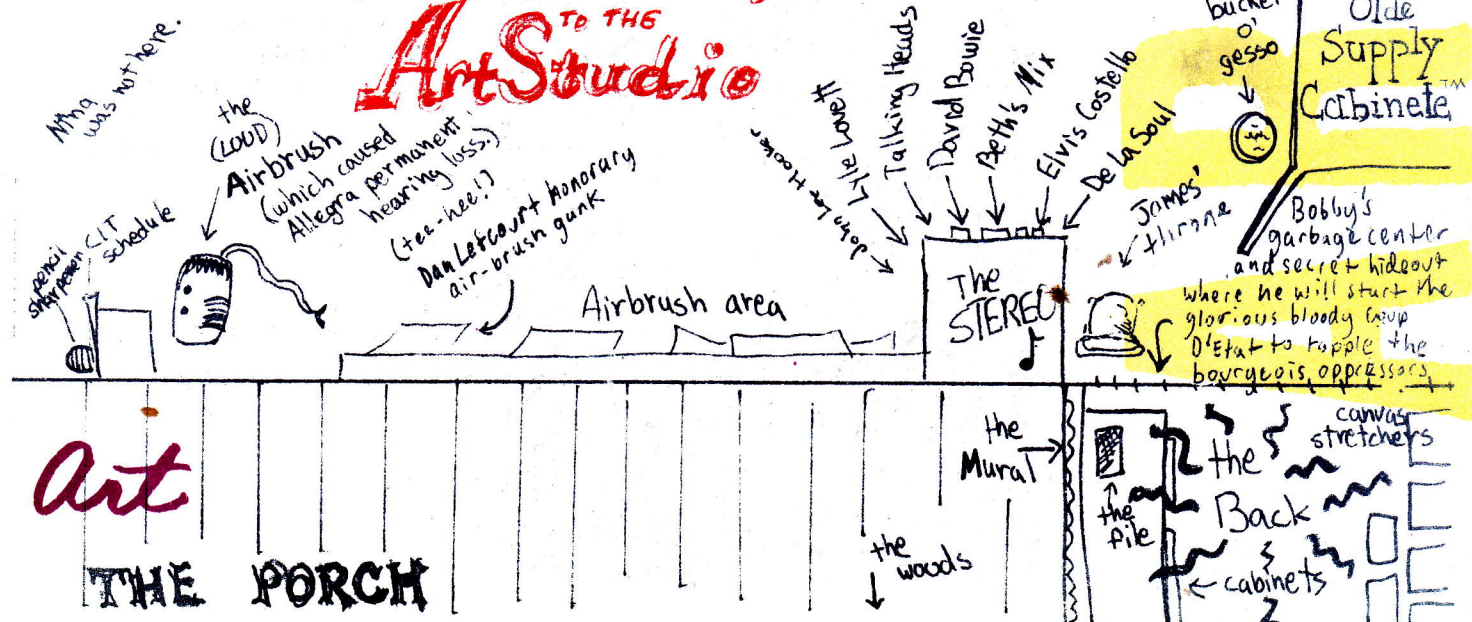 TO THE
Art Studio
Nina
was not here.
the
(LOUD)
Airbrush
(which caused
Allegra permanent
hearing loss.)
(tee-hee!)
Dan Lefcourt Honorary
air-brush gunk
pencil
sharpener
CIT
schedule
Airbrush area
John Lee Hooker
Lyle Lovett
Talking Heads
David Bowie
Beth's Mix
Elvis Costello
De La Soul
The
STEREO
James'
throne
bucket
o'
gesso
Olde
Supply
Cabinete™
Bobby's
garbage center
and secret hideout
where he will start the
glorious bloody Coup
D'Etat to topple the
bourgeois oppressors
Art
THE PORCH
the
woods
the
Mural
the
pile
the
Back
cabinets
canvas
stretchers